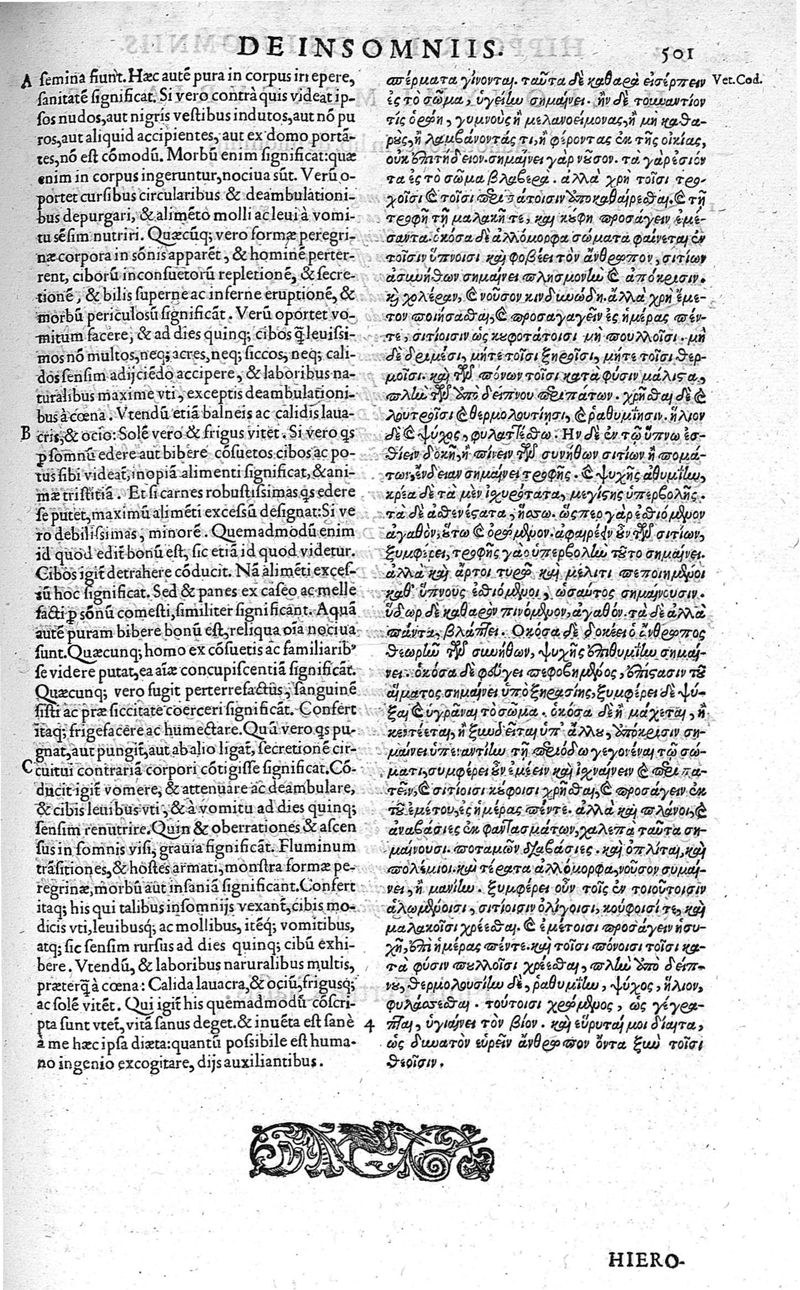 DE INSOMNIIS.
501
A semina fiunt. Hæc autē pura in corpus irrepere,
sanitatē significat. Si vero contrà quis videat ip-
sos nudos, aut nigris vestibus indutos, aut nō pu
ros, aut aliquid accipientes, aut ex domo portā-
tes, nō est cōmodū. Morbū enim significat: quæ
enim in corpus ingeruntur, nociua sūt. Verū o-
portet cursibus circularibus & deambulationi-
bus depurgari, & alimēto molli ac leui à vomi-
tu sēsim nutriri. Quæcūq; vero formæ peregri-
næ corpora in sōnis apparēt, & hominē perter-
rent, ciborū inconsuetorū repletionē, & secre-
tionē, & bilis superne ac inferne eruptionē, &
morbū periculosū significāt. Verū oportet vo-
mitum facere, & ad dies quinq; cibos q̄ leuissi-
mos nō multos, neq; acres, neq; siccos, neq; cali-
dos sensim adijciēdo accipere, & laboribus na-
turalibus maxime vti, exceptis deambulationi-
bus à cœna. Vtendū etiā balneis ac calidis laua-
B cris, & ocio: Solē vero & frigus vitēt. Si vero qs
p somnū edere aut bibere cōsuetos cibos ac po-
tus sibi videat, inopiā alimenti significat, & ani-
mæ tristitiā. Et si carnes robustissimas qs edere
se putet, maximū alimēti excessū designat: Si ve
ro debilissimas, minorē. Quemadmodū enim
id quod edit bonū est, sic etiā id quod videtur.
Cibos igit̄ detrahere cōducit. Nā alimēti exces-
sū hoc significat. Sed & panes ex caseo ac melle
facti p sōnū comesti, similiter significant. Aquā
autē puram bibere bonū est, reliqua oīa nociua
sunt. Quæcunq; homo ex cōsuetis ac familiarib'
se videre putat, ea aīæ concupiscentiā significāt.
Quæcunq; vero fugit perterrefactus, sanguinē
sisti ac præ siccitate coerceri significat. Confert
itaq; frigefacere ac humectare. Quū vero qs pu-
gnat, aut pungit, aut ab alio ligat, secretionē cir-
C cuitui contrariā corpori cōtigisse significat. Cō-
ducit igit vomere, & attenuare ac deambulare,
& cibis leuibus vti, & à vomitu ad dies quinq;
sensim renutrire. Quin & oberrationes & ascen
sus in somnis visi, grauia significāt. Fluminum
trāsitiones, & hostes armati, monstra formæ pe-
regrinæ, morbū aut insaniā significant. Confert
itaq; his qui talibus insomnijs vexant, cibis mo-
dicis vti, leuibusq; ac mollibus, itēq; vomitibus,
atq; sic sensim rursus ad dies quinq; cibū exhi-
bere. Vtendū, & laboribus naruralibus multis,
præterq̄ à cœna: Calida lauacra, & ociū, frigusq;
ac solē vitēt. Qui igit his quemadmodū cōscri-
pta sunt vtet, vitā sanus deget. & inuēta est sanè
à me hæc ipsa diæta: quantū possibile est huma-
no ingenio excogitare, dijs auxiliantibus.
σπέρματα γίνονται. ταῦτα δὲ καθαρὰ εἰσέρπειν
Vet. Cod.
ἐς τὸ σῶμα, ὑγείην σημαίνει. ἢν δὲ τοὐναντίον
τὶς ὁρέη, γυμνοὺς ἢ μελανοείμονας, ἢ μὴ καθα-
ροὺς, ἢ λαμβάνοντάς τι, ἢ φέροντας ἐκ τῆς οἰκίας,
οὐκ ἐπιτήδειον. σημαίνει γὰρ νοῦσον. τὰ γὰρ ἐσιόν
τα ἐς τὸ σῶμα βλαβερά. ἀλλὰ χρὴ τοῖσι τρο-
χοῖσι καὶ τοῖσι περιπάτοισιν ὑποκαθαίρεσθαι, καὶ τῇ
τροφῇ τῇ μαλακῇ τε, καὶ κούφῃ προσάγειν ἐμέ-
σαντα. ὁκόσα δὲ ἀλλόμορφα σώματα φαίνεται ἐν
τοῖσιν ὕπνοισι καὶ φοβέει τὸν ἄνθρωπον, σιτίων
ἀσυνήθων σημαίνει πλησμονὴν καὶ ἀπόκρισιν.
καὶ χολέραν, καὶ νοῦσον κινδυνώδη. ἀλλὰ χρὴ ἔμε-
τον ποιήσασθαι, καὶ προσαγαγεῖν ἐς ἡμέρας πέν-
τε, σιτίοισιν ὡς κουφοτάτοισι μὴ πουλλοῖσι. μὴ
δὲ δριμέσι, μήτε τοῖσι ξηροῖσι, μήτε τοῖσι θερ-
μοῖσι. καὶ τῶν πόνων τοῖσι κατὰ φύσιν μάλιστα,
πλὴν τῶν ὑπὸ δείπνου περιπάτων. χρῆσθαι δὲ καὶ
λουτροῖσι καὶ θερμολουτίῃσι, καὶ ῥαθυμίῃσιν. ἥλιον
δὲ καὶ ψύχος, φυλαττέσθω. Ἢν δὲ ἐν τῷ ὕπνῳ ἐσ-
θίειν δοκῇ, ἢ πίνειν τῶν συνήθων σιτίων ἢ πομά-
των, ἔνδειαν σημαίνει τροφῆς. καὶ ψυχῆς ἀθυμίην,
κρέα δὲ τὰ μὲν ἰσχυρότατα, μεγίστης ὑπερβολῆς.
τὰ δὲ ἀσθενέστατα, ἥσσω. ὥσπερ γὰρ ἐσθιόμενον
ἀγαθὸν, οὕτω καὶ ὁρεόμενον. ἀφαιρέειν οὖν τῶν σιτίων,
ξυμφέρει, τροφῆς γὰρ ὑπερβολὴν τοῦτο σημαίνει.
ἀλλὰ καὶ ἄρτοι τυρῷ καὶ μέλιτι πεποιημένοι
καθ' ὕπνους ἐσθιόμενοι, ὡσαύτως σημαίνουσιν.
ὕδωρ δὲ καθαρὸν πινόμενον, ἀγαθόν. τὰ δὲ ἀλλὰ
πάντα, βλάπτει. Ὁκόσα δὲ δοκέει ὁ ἄνθρωπος
θεωρεῖν τῶν συνήθων, ψυχῆς ἐπιθυμίην σημαί-
νει. ὁκόσα δὲ φεύγει πεφοβημένος, ἐπίστασιν τοῦ
αἵματος σημαίνει ὑπὸ ξηρασίης, ξυμφέρει δὲ ψύ-
ξαι καὶ ὑγρᾶναι τὸ σῶμα. ὁκόσα δὲ ἢ μάχεται, ἢ
κεντέεται, ἢ ξυνδεῖται ὑπ' ἄλλου, ἀπόκρισιν ση-
μαίνει ὑπεναντίην τῇ περιόδῳ γεγονέναι τῷ σώ-
ματι, συμφέρει οὖν ἐμέειν καὶ ἰσχναίνειν καὶ περιπα-
τεῖν, καὶ σιτίοισι κούφοισι χρῆσθαι, καὶ προσάγειν ἐκ
τοῦ ἐμέτου, ἐς ἡμέρας πέντε. ἀλλὰ καὶ πλάνοι, καὶ
ἀναβάσιες ἐκ φαντασμάτων, χαλεπὰ ταῦτα ση-
μαίνουσι. ποταμῶν διαβάσιες. καὶ ὁπλῖται, καὶ
πολέμιοι. καὶ τέρατα ἀλλόμορφα, νοῦσον σημαί-
νει, ἢ μανίην. ξυμφέρει οὖν τοῖς ἐν τοιούτοισιν
ἁλωμένοισι, σιτίοισιν ὀλίγοισι, κούφοισί τε, καὶ
μαλακοῖσι χρέεσθαι. καὶ ἐμέτοισι προσάγειν ἡσυ-
χῇ, ἐπὶ ἡμέρας πέντε. καὶ τοῖσι πόνοισι τοῖσι κα-
τὰ φύσιν πολλοῖσι χρέεσθαι, πλὴν ὑπὸ δείπ-
νου, θερμολουσίην δὲ, ῥαθυμίην, ψύχος, ἥλιον,
φυλάσσεσθαι. τούτοισι χρεόμενος, ὡς γέγρα-
4 πται, ὑγιαίνει τὸν βίον. καὶ εὕρηταί μοι δίαιτα,
ὡς δυνατὸν εὑρεῖν ἄνθρωπον ὄντα ξὺν τοῖσι
θεοῖσιν.
HIERO-